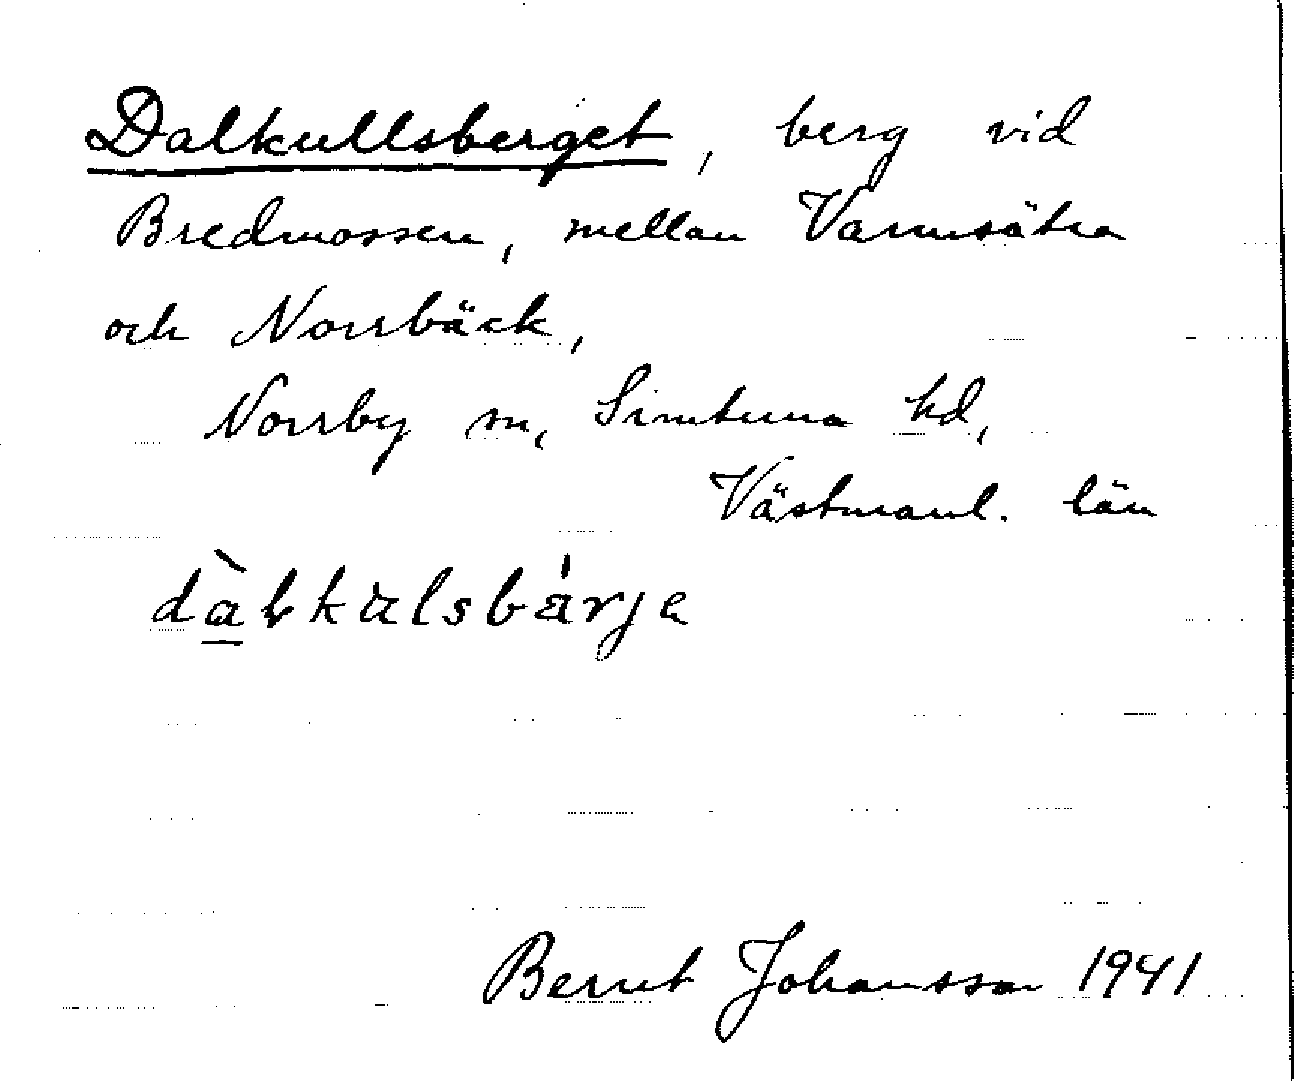 Dalkullsberget, berg vid
Bredmossen, mellan Varmsätra
och Norrbäck,
Norrby sn, Simtuna hd,
Västmanl. län
dàłkulsbärje
Bernt Johansson 1941